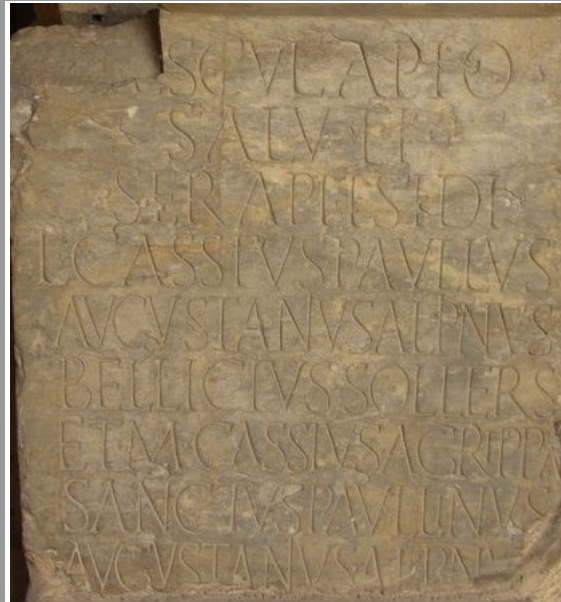 SCVLAPIO
SALVTI
SERAPI ISIDI
L CASSIVS PAVLLVS
AVGVSTANVS ALPINVS
BELLICIVS SOLLERS
ET M CASSIVS AGRIPPA
SANCTVS PAVLLINVS
AVGVSTANVS ALPINV